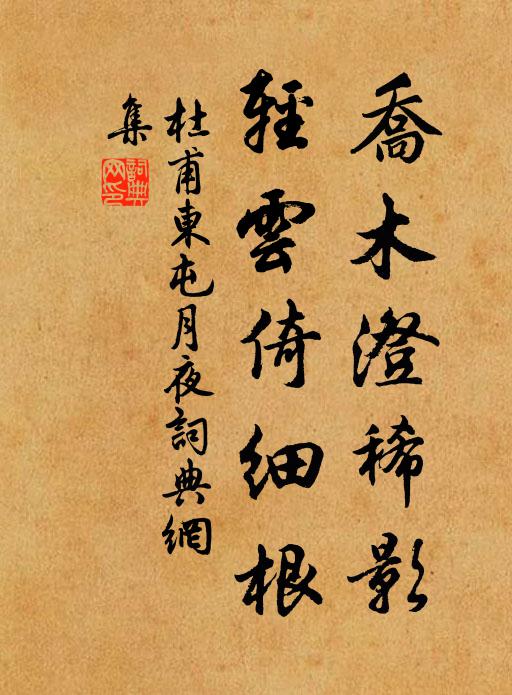 喬木澄稀影
輕雲倚細根
杜甫東屯月夜詞典網
集
詞典
网印